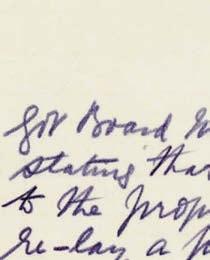 Gov Board
stating that
to the prop
re-lay a